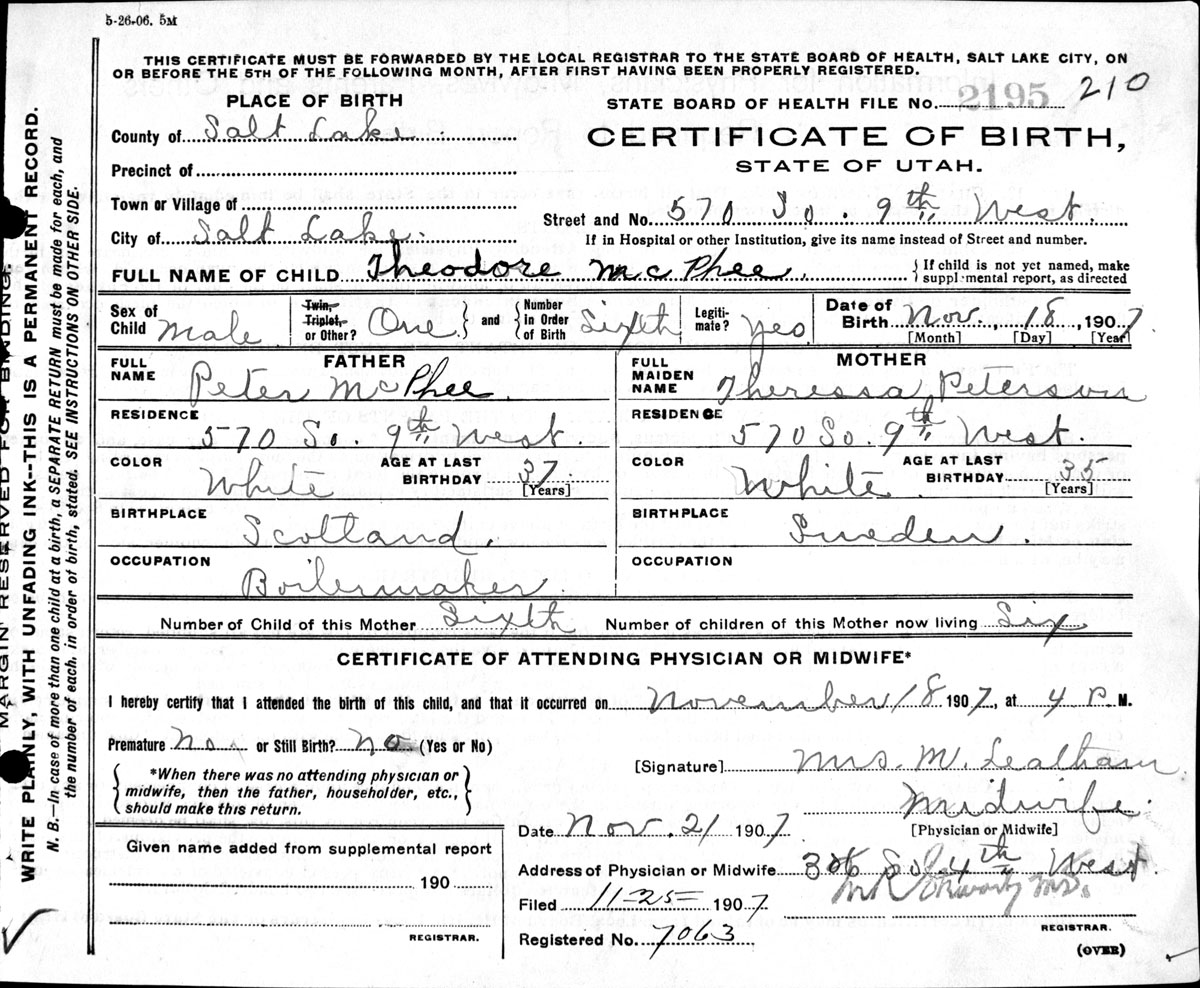 5-26-06. 5M
THIS CERTIFICATE MUST BE FORWARDED BY THE LOCAL REGISTRAR TO THE STATE BOARD OF HEALTH, SALT LAKE CITY, ON
OR BEFORE THE 5TH OF THE FOLLOWING MONTH, AFTER FIRST HAVING BEEN PROPERLY REGISTERED.
PLACE OF BIRTH
STATE BOARD OF HEALTH FILE No. 2195 210
County of Salt Lake.
CERTIFICATE OF BIRTH,
STATE OF UTAH.
Precinct of
Town or Village of
Street and No. 570 So. 9th West
City of Salt Lake.
If in Hospital or other Institution, give its name instead of Street and number.
FULL NAME OF CHILD Theodore McPhee. {If child is not yet named, make
supplemental report, as directed
Sex of Child Male Twin, Triplet, or Other? One } and { Number in Order of Birth Sixth Legitimate? Yes Date of Birth Nov. 18, 1907
[Month] [Day] [Year]
FATHER
FULL NAME Peter McPhee.
RESIDENCE 570 So. 9th West.
COLOR White AGE AT LAST BIRTHDAY 37 [Years]
BIRTHPLACE Scotland.
OCCUPATION Boilermaker.
MOTHER
FULL MAIDEN NAME Theressa Peterson
RESIDENCE 570 So. 9th West.
COLOR White. AGE AT LAST BIRTHDAY 35 [Years]
BIRTHPLACE Sweden.
OCCUPATION
Number of Child of this Mother Sixth Number of children of this Mother now living Six
CERTIFICATE OF ATTENDING PHYSICIAN OR MIDWIFE*
I hereby certify that I attended the birth of this child, and that it occurred on November 18 1907, at 4 P. M.
Premature No. or Still Birth? No (Yes or No)
{*When there was no attending physician or
midwife, then the father, householder, etc.,
should make this return.}
[Signature] Mrs. M. Lealham
Midwife.
[Physician or Midwife]
Date Nov. 21 1907
Address of Physician or Midwife 306 So. 4th West.
Given name added from supplemental report
190
REGISTRAR.
Filed 11-25- 1907
M.D.
REGISTRAR.
Registered No. 7063
(OVER)
MARGIN RESERVED FOR BINDING.
WRITE PLAINLY, WITH UNFADING INK--THIS IS A PERMANENT RECORD.
N. B.—In case of more than one child at a birth, a SEPARATE RETURN must be made for each, and
the number of each, in order of birth, stated. SEE INSTRUCTIONS ON OTHER SIDE.